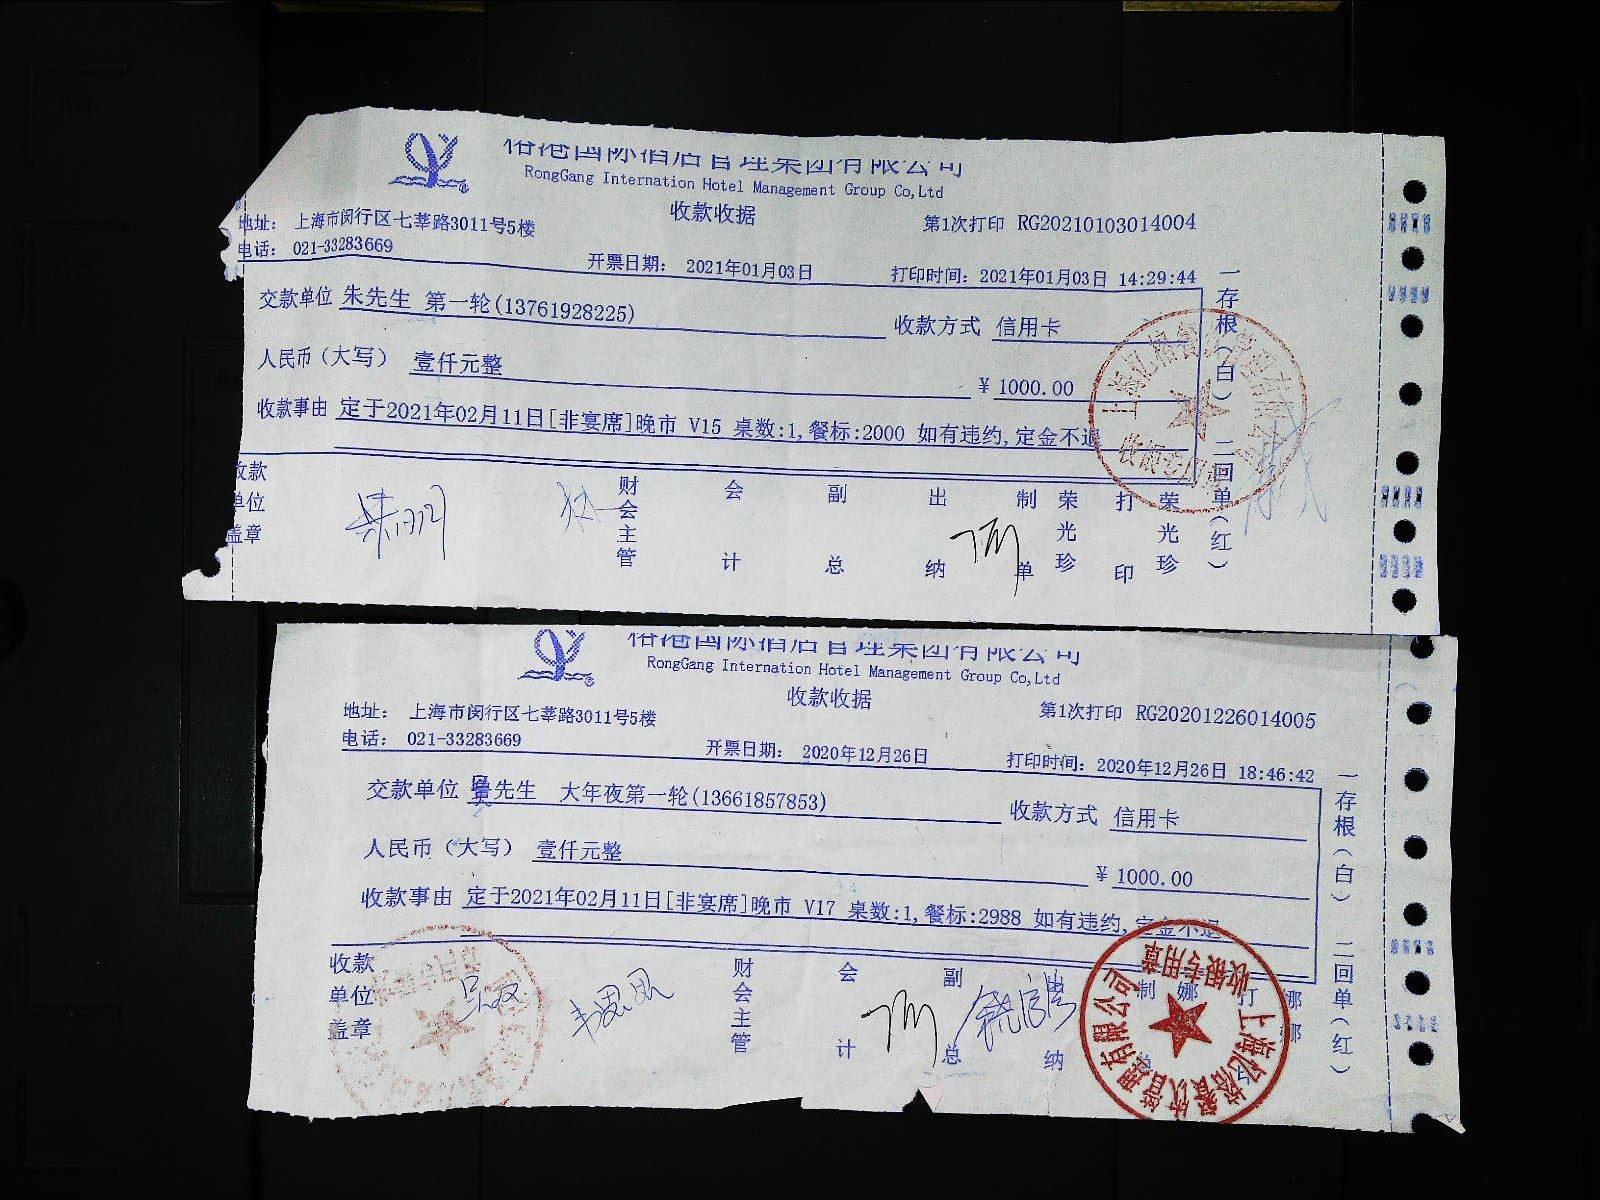 裕港国际酒店管理集团有限公司
RongGang Internation Hotel Management Group Co,Ltd
收款收据
地址: 上海市闵行区七莘路3011号5楼
第1次打印 RG20210103014004
电话: 021-33283669
开票日期: 2021年01月03日
打印时间: 2021年01月03日 14:29:44
交款单位 朱先生 第一轮(13761928225)
收款方式 信用卡
人民币(大写) 壹仟元整
¥ 1000.00
收款事由 定于2021年02月11日[非宴席]晚市 V15 桌数:1,餐标:2000 如有违约,定金不退
收款单位盖章
财会主管
会计
副总
出纳
制单
荣光珍
打印
荣光珍
一存根(白) 二回单(红)
收银专用章
裕港国际酒店管理集团有限公司
RongGang Internation Hotel Management Group Co,Ltd
收款收据
地址: 上海市闵行区七莘路3011号5楼
第1次打印 RG20201226014005
电话: 021-33283669
开票日期: 2020年12月26日
打印时间: 2020年12月26日 18:46:42
交款单位 先生 大年夜第一轮(13661857853)
收款方式 信用卡
人民币(大写) 壹仟元整
¥ 1000.00
收款事由 定于2021年02月11日[非宴席]晚市 V17 桌数:1,餐标:2988 如有违约,定金不退
收款单位盖章
财会主管
会计
副总
出纳
制单
娜
打
娜娜
一存根(白) 二回单(红)
上海亿裕餐饮管理有限公司
收银专用章